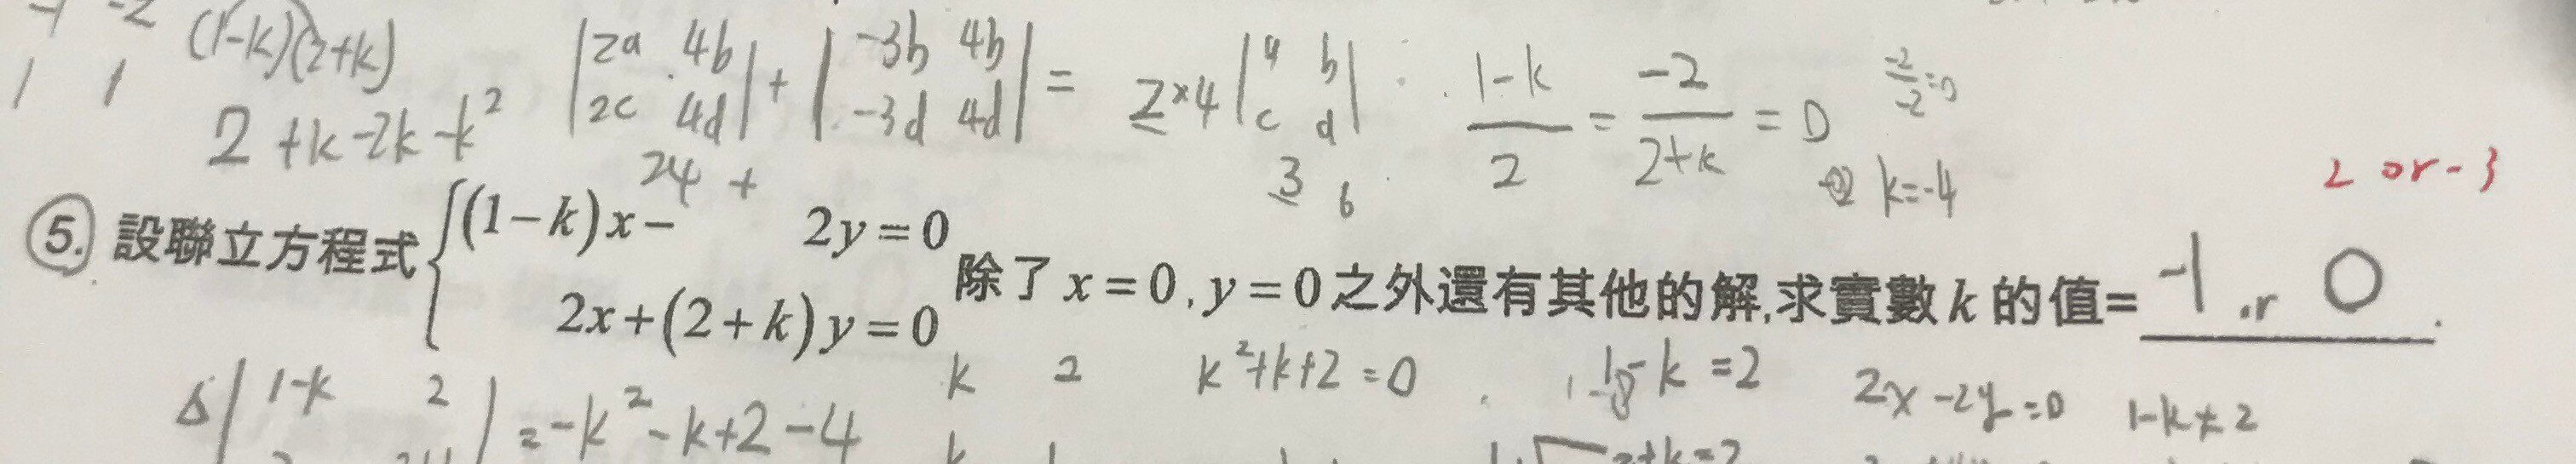 (1-k)(2+k)
2+k-2k-k²
|2a 4b| + |-3b 4b| = 2×4 |a b|
|2c 4d| |-3d 4d| |c d|
24 + 3 6
(1-k)/2 = -2/(2+k) = 0
-2/-2=0
k=-4
2 or -3
5. 設聯立方程式 { (1-k)x- 2y=0
2x+(2+k)y=0 除了x=0,y=0之外還有其他的解,求實數k的值= -1 or 0 .
Δ |1-k 2| = -k²-k+2-4
k 2
k²+k+2=0
1-k=2
2x-2y=0
1-k≠2
2+k=2